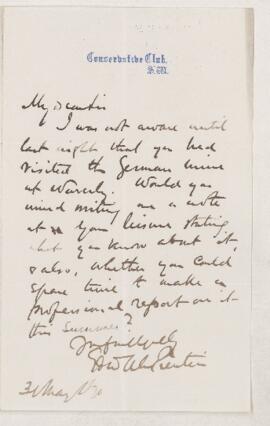 Conservative Club.
S.W.
My dear Sir
I was not aware until
last night that you had
visited the German mine
at Waverly. Would you
mind writing me a note
at your leisure stating
what you know about it,
& also, whether you could
spare time to make a
professional report on it
this Summer?
Yrs faithfully
31 May